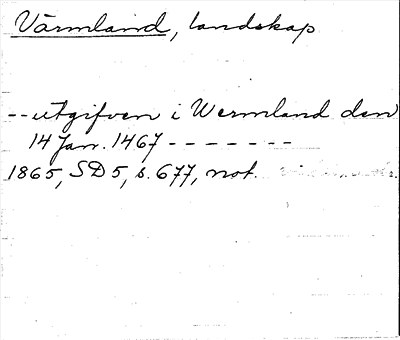 Värmland, landskap
--utgifven i Wermland den
14 Jan. 1467 - - - - - - -
1865, SD 5, s. 677, not.